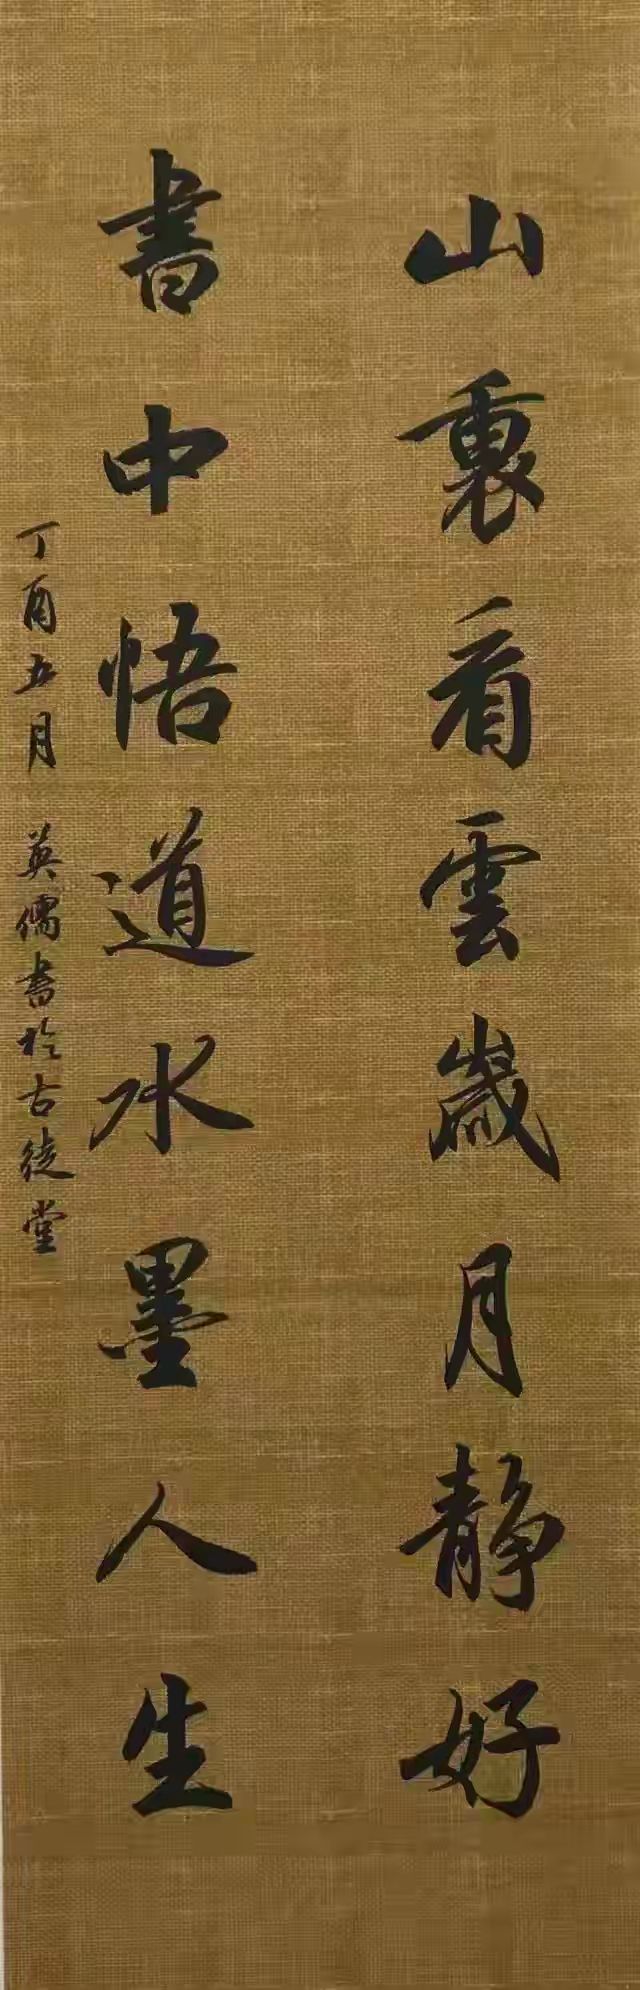 山裏看雲歲月静好
書中悟道水墨人生
丁酉五月 英儒書於古徒堂